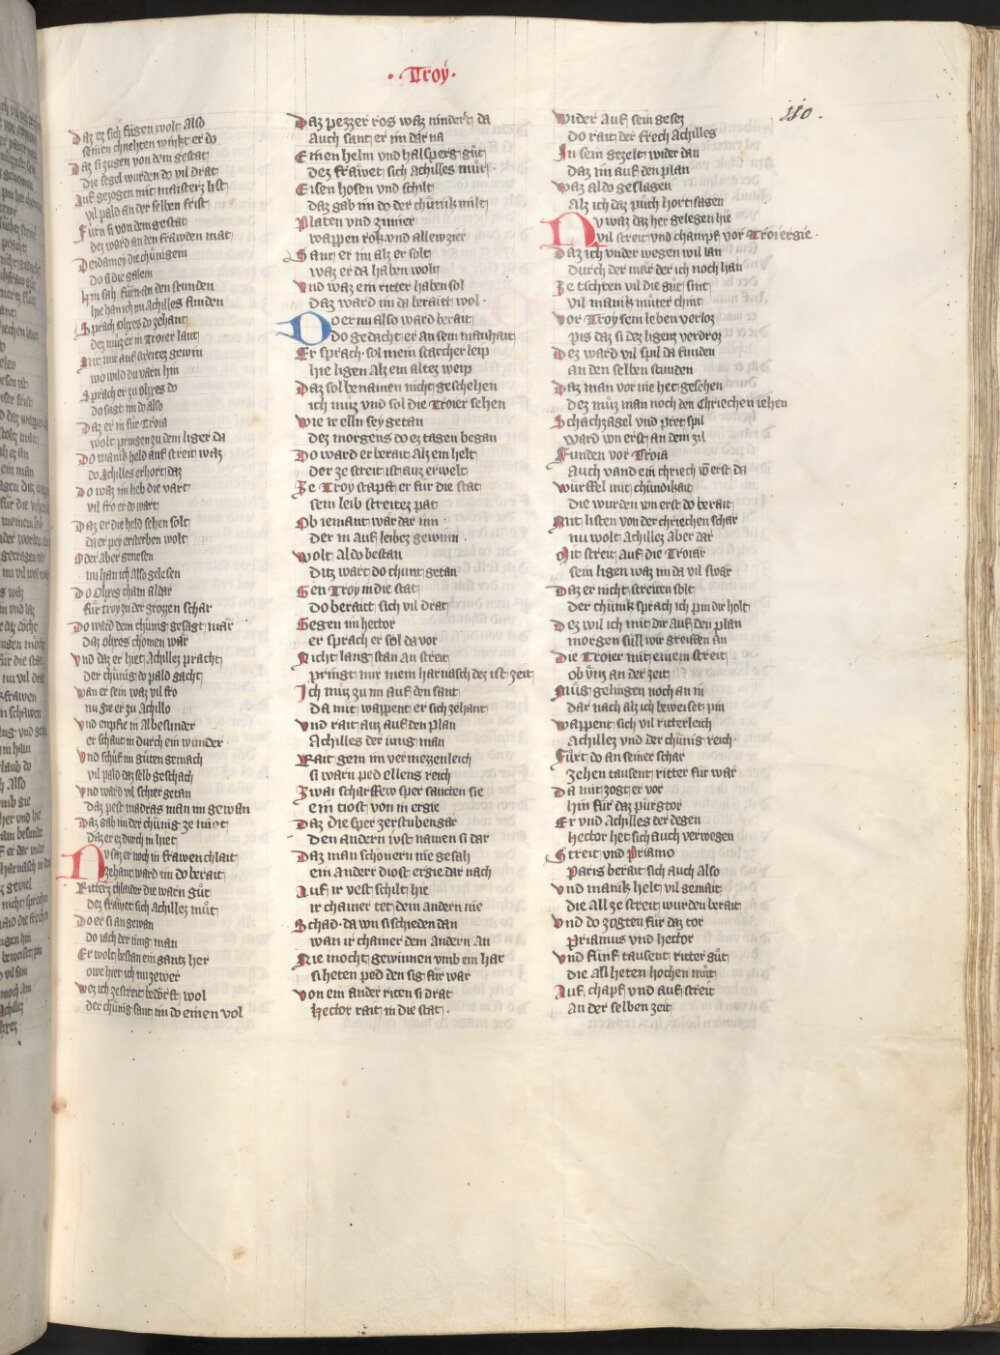 · Troy ·
110 .
Daz ez sich fügen wolt also
seinen chnehten winkt er do
Daz si zugen von dem gestat
die segel wurden do vil drat
Auf gezogen mit maisterz list
vil pald an der selben frist
Fürn si von dem gestat
dez ward an den frawden mat
Deidamey die chünigein
do si die galein
Hin sah fürn an den stunden
hie han ich nu Achilles funden
Sprach Olixes do zehant
dez muz er in Troier lant
Mit mir auf streitez gewin
wo wild du varn hin
Sprach er zu olixes do
do sagt im do also
Daz er in für Troia
wolt pringen zu dem liger da
Do manik held auf streit waz
do Achilles erhort daz
Do waz im lieb die vart
vil fro er do wart
Daz er die held sehen solt
da er pey ersterben wolt
Oder aber genesen
nu han ich also gelesen
Do Olixes cham aldar
für troy zu der grozen schar
Do ward dem chünig gesagt mär
daz olixes chomen wär
Vnd daz er hiet Achillez pracht
der chünig do pald gacht
Wan er sein waz vil fro
nu gie er zu Achillo
Vnd enpfie in Albesunder
er schaut in durch ein wunder
Vnd schüf im güten gemach
vil pald daz selb geschach
Vnd ward vil schier getan
daz pest madras man im gewan
Daz gab im der chünig ze
daz er ez durch in hiet
Nv saz er noch in frawen chlait
zehant ward im do berait
Ritterz chlaider die warn güt
dez frawet sich Achillez müt
Do er si an gewan
do iach der iung man
Er wolt bestan ein gantz her
owe hiet ich nu zewer
Wez ich ze streit bedörft wol
der chünig sant im do einen vol
Daz pezzer ros waz nindert da
auch sant er im dar na
Einen helm vnd halsperg güt
dez frawet sich Achilles müt ·
Eisen hosen vnd schilt
daz gab im do der chünik milt
Platen vnd zimier
wappen rok vnd allew zier
Sant er im alz er solt
waz er da haben wolt
Vnd waz ein ritter haben sol
daz ward im da berait wol ·
Do er nu also ward berait
do gedacht er an sein manhait
Er sprach sol mein starcher leip
hie ligen alz ein altez weip
Daz sol benamen nicht geschehen
ich müz vnd sol die Troier sehen
Wie ir elln sey getan
dez morgens do ez tagen began
Do ward er berait alz ein helt
der ze streit ist auz erwelt
Ze Troy stapft er für die stat
sein leib streitez pat
Ob iemant wär dar inn
der in auf leibez gewinn .
Wolt aldo bestan
ditz wart do chunt getan
Gen Troy in die stat
do berait sich vil drat
Gegen im hector
er sprach er sol da vor
Nicht lang stan an streit
pringt mir mein harnasch dez ist zeit
Ich müz zu im auf den sant
da mit wappent er sich zehant
Vnd rait auz auf den plan
Achilles der iung man
Rait gein im vermezzenleich
si warn ped ellens reich
Zwai scharffew sper sancten sie
ein tiost von in ergie
Daz die sper zerstubengar
den andern ivst namen si dar
Daz man schonern nie gesah
ein ander diost ergie dar nach
Auf ir vest schilt hie
ir chainer tet dem andern nie
Schad da von si schieden dan
wan ir chainer dem andern an
Nie mocht gewinnen vmb ein har
si heten ped den sig für war
Von ein ander riten si drat
hector rait in die stat ·
Wider auf sein gesez
do rait der frech Achilles
In sein gezelt wider dan
daz im auf den plan
Waz aldo geslagen
Alz ich daz puch hort sagen
Nv waz daz her gelegen hie
vil streit vnd champf vor Troi ergie ·
Daz ich vnder wegen wil lan
durch der mär der ich noch han
Ze tichten vil die güt sint
vil manik müter chint
Vor Troy sein leben verloz
pis daz si dez ligenz verdroz
Dez ward vil spil da funden
an den selben stunden
Daz man vor nie het gesehen
dez müz man noch den Chriechen iehen
Schachzagel vnd pret spil
ward von erst an dem zil
Funden vor Troia
auch vand ein chriech von erst da
Würffel mit chündikait
die wurden von erst do berait
Mit listen von der chriechen schar
nu wolt Achillez aber dar
Mit streit auf die Troiär
sein ligen waz im da vil swär
Daz er nicht streiten solt
der chünik sprach ich pin die holt
Dez wil ich mit dir auf den plan
morgen süll wir greiffen an
Die Troier mit einem streit
ob vnz an der zeit
Müg gelingen noch an in
dar nach alz ich beweiset pin
Wappent sich vil ritterleich
Achillez vnd der chünig reich ·
Fürt do an seiner schar
zehen tausent ritter für war
Da mit zogt er vor
hin für daz pürgtor
Er vnd Achilles der degen
hector het sich auch verwegen
Streit vnd Priamo
Paris berait sich auch also
Vnd manik helt vil gemait
die all ze streit wurden berait
Vnd do zogten für daz tor
priamus vnd hector
Vnd fünf tausent ritter güt
die all heten hochen müt
Auf chapf vnd auf streit
an der selben zeit